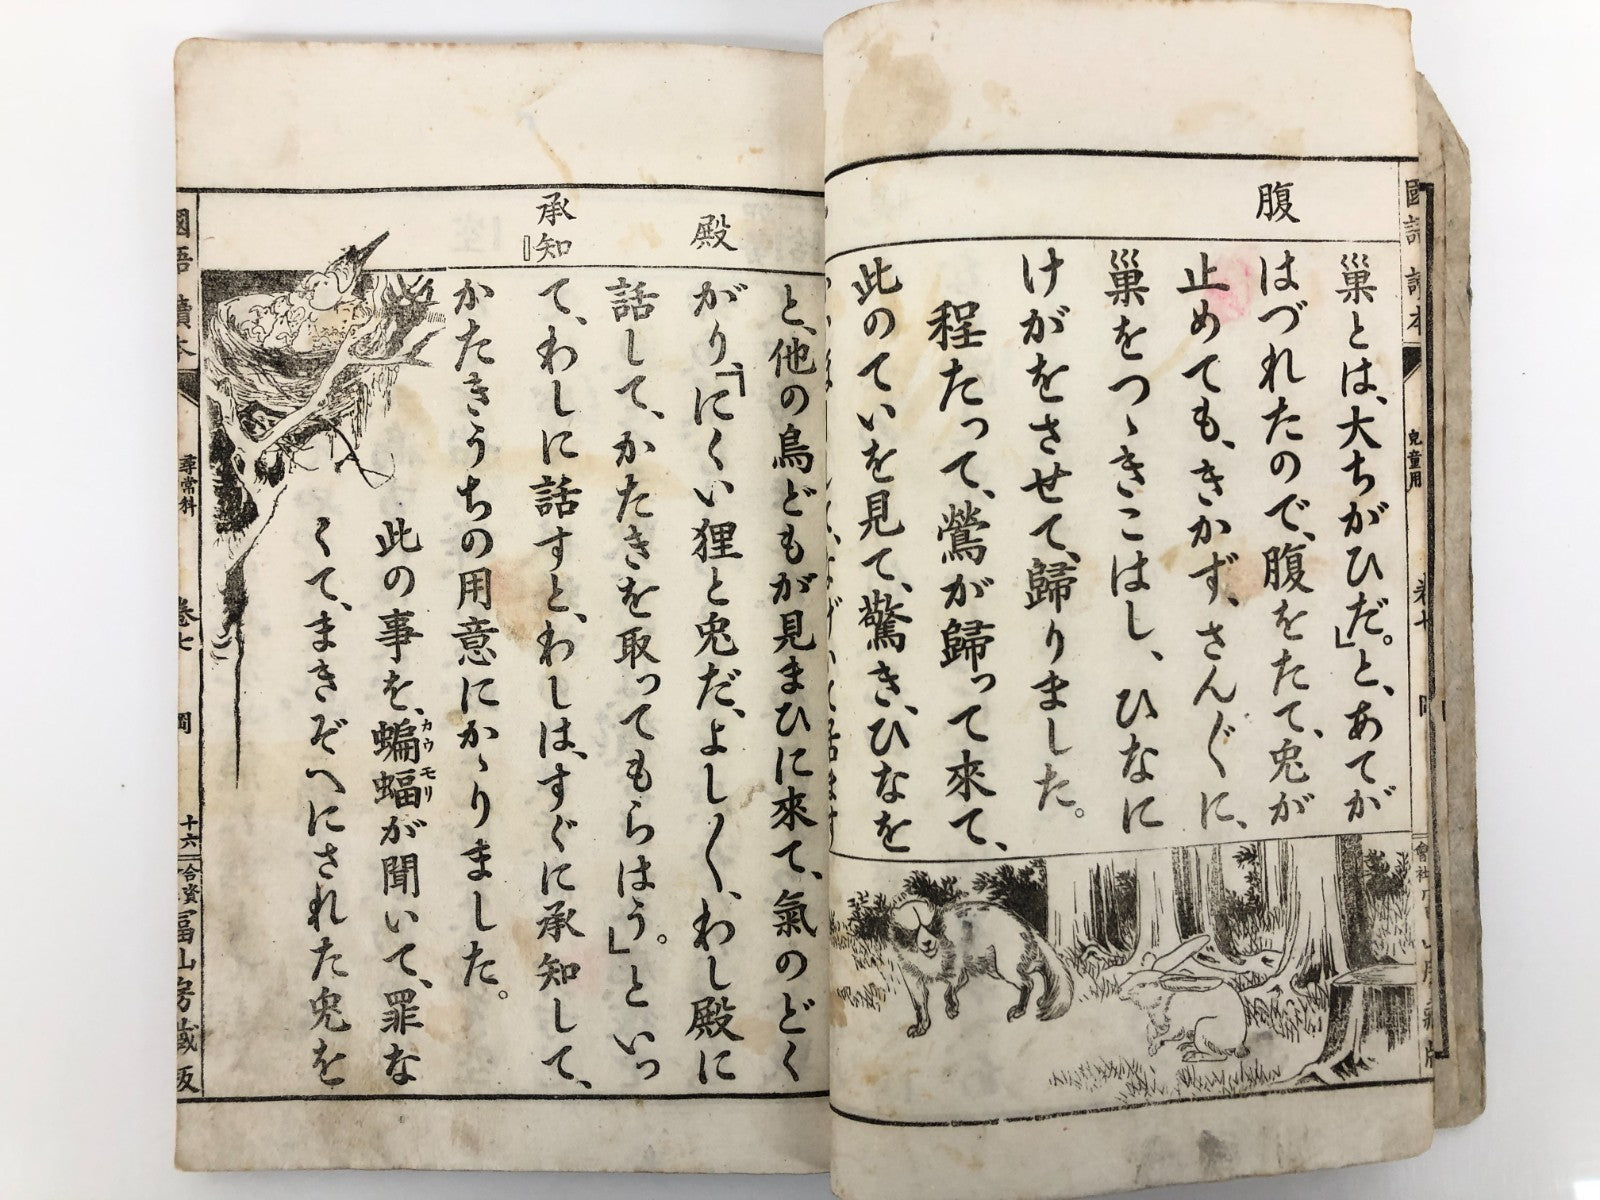 腹
巣とは、大ちがひだ。」と、あてが
はづれたので、腹をたて、兎が
止めても、きかず、さん〴〵に、
巣をつゝきこはし、ひなに
けがをさせて、歸りました。
程たって、鶯が歸って來て、
此のていを見て、驚き、ひなを
殿
承知
と、他の鳥どもが見まひに來て、氣のどく
がり、「にくい狸と兎だ、よし〳〵、わし殿に
話して、かたきを取ってもらはう。」といっ
て、わしに話すと、わしは、すぐに承知して、
かたきうちの用意にかゝりました。
此の事を、蝙蝠が聞いて、罪な
カウモリ
くて、まきぞへにされた兎を
國語讀本
尋常科
卷七
十六
合資
冨山房藏版